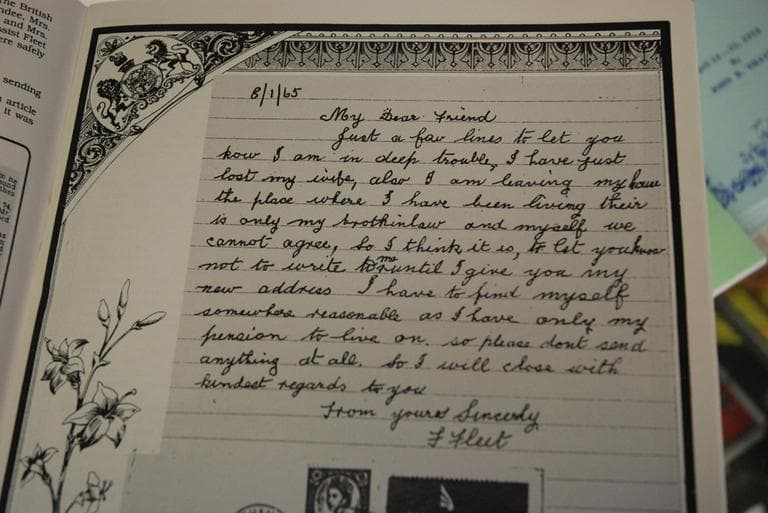 the British
ndee. Mrs.
and Mrs.
ssist Fleet
ere safely
sending
article
it was
8/1/65
My Dear Friend
Just a few lines to let you
kow I am in deep trouble, I have just
lost my wife, also I am leaving my house
the place where I have been living their
is only my brothinlaw and myself we
cannot agree, So I think it is, to let you know
not to write to me until I give you my
new address I have to find myself
somewhere reasonable as I have only my
pension to live on. so please dont send
anything at all. So I will close with
kindest regards to you
From yours Sincerly
F Fleet